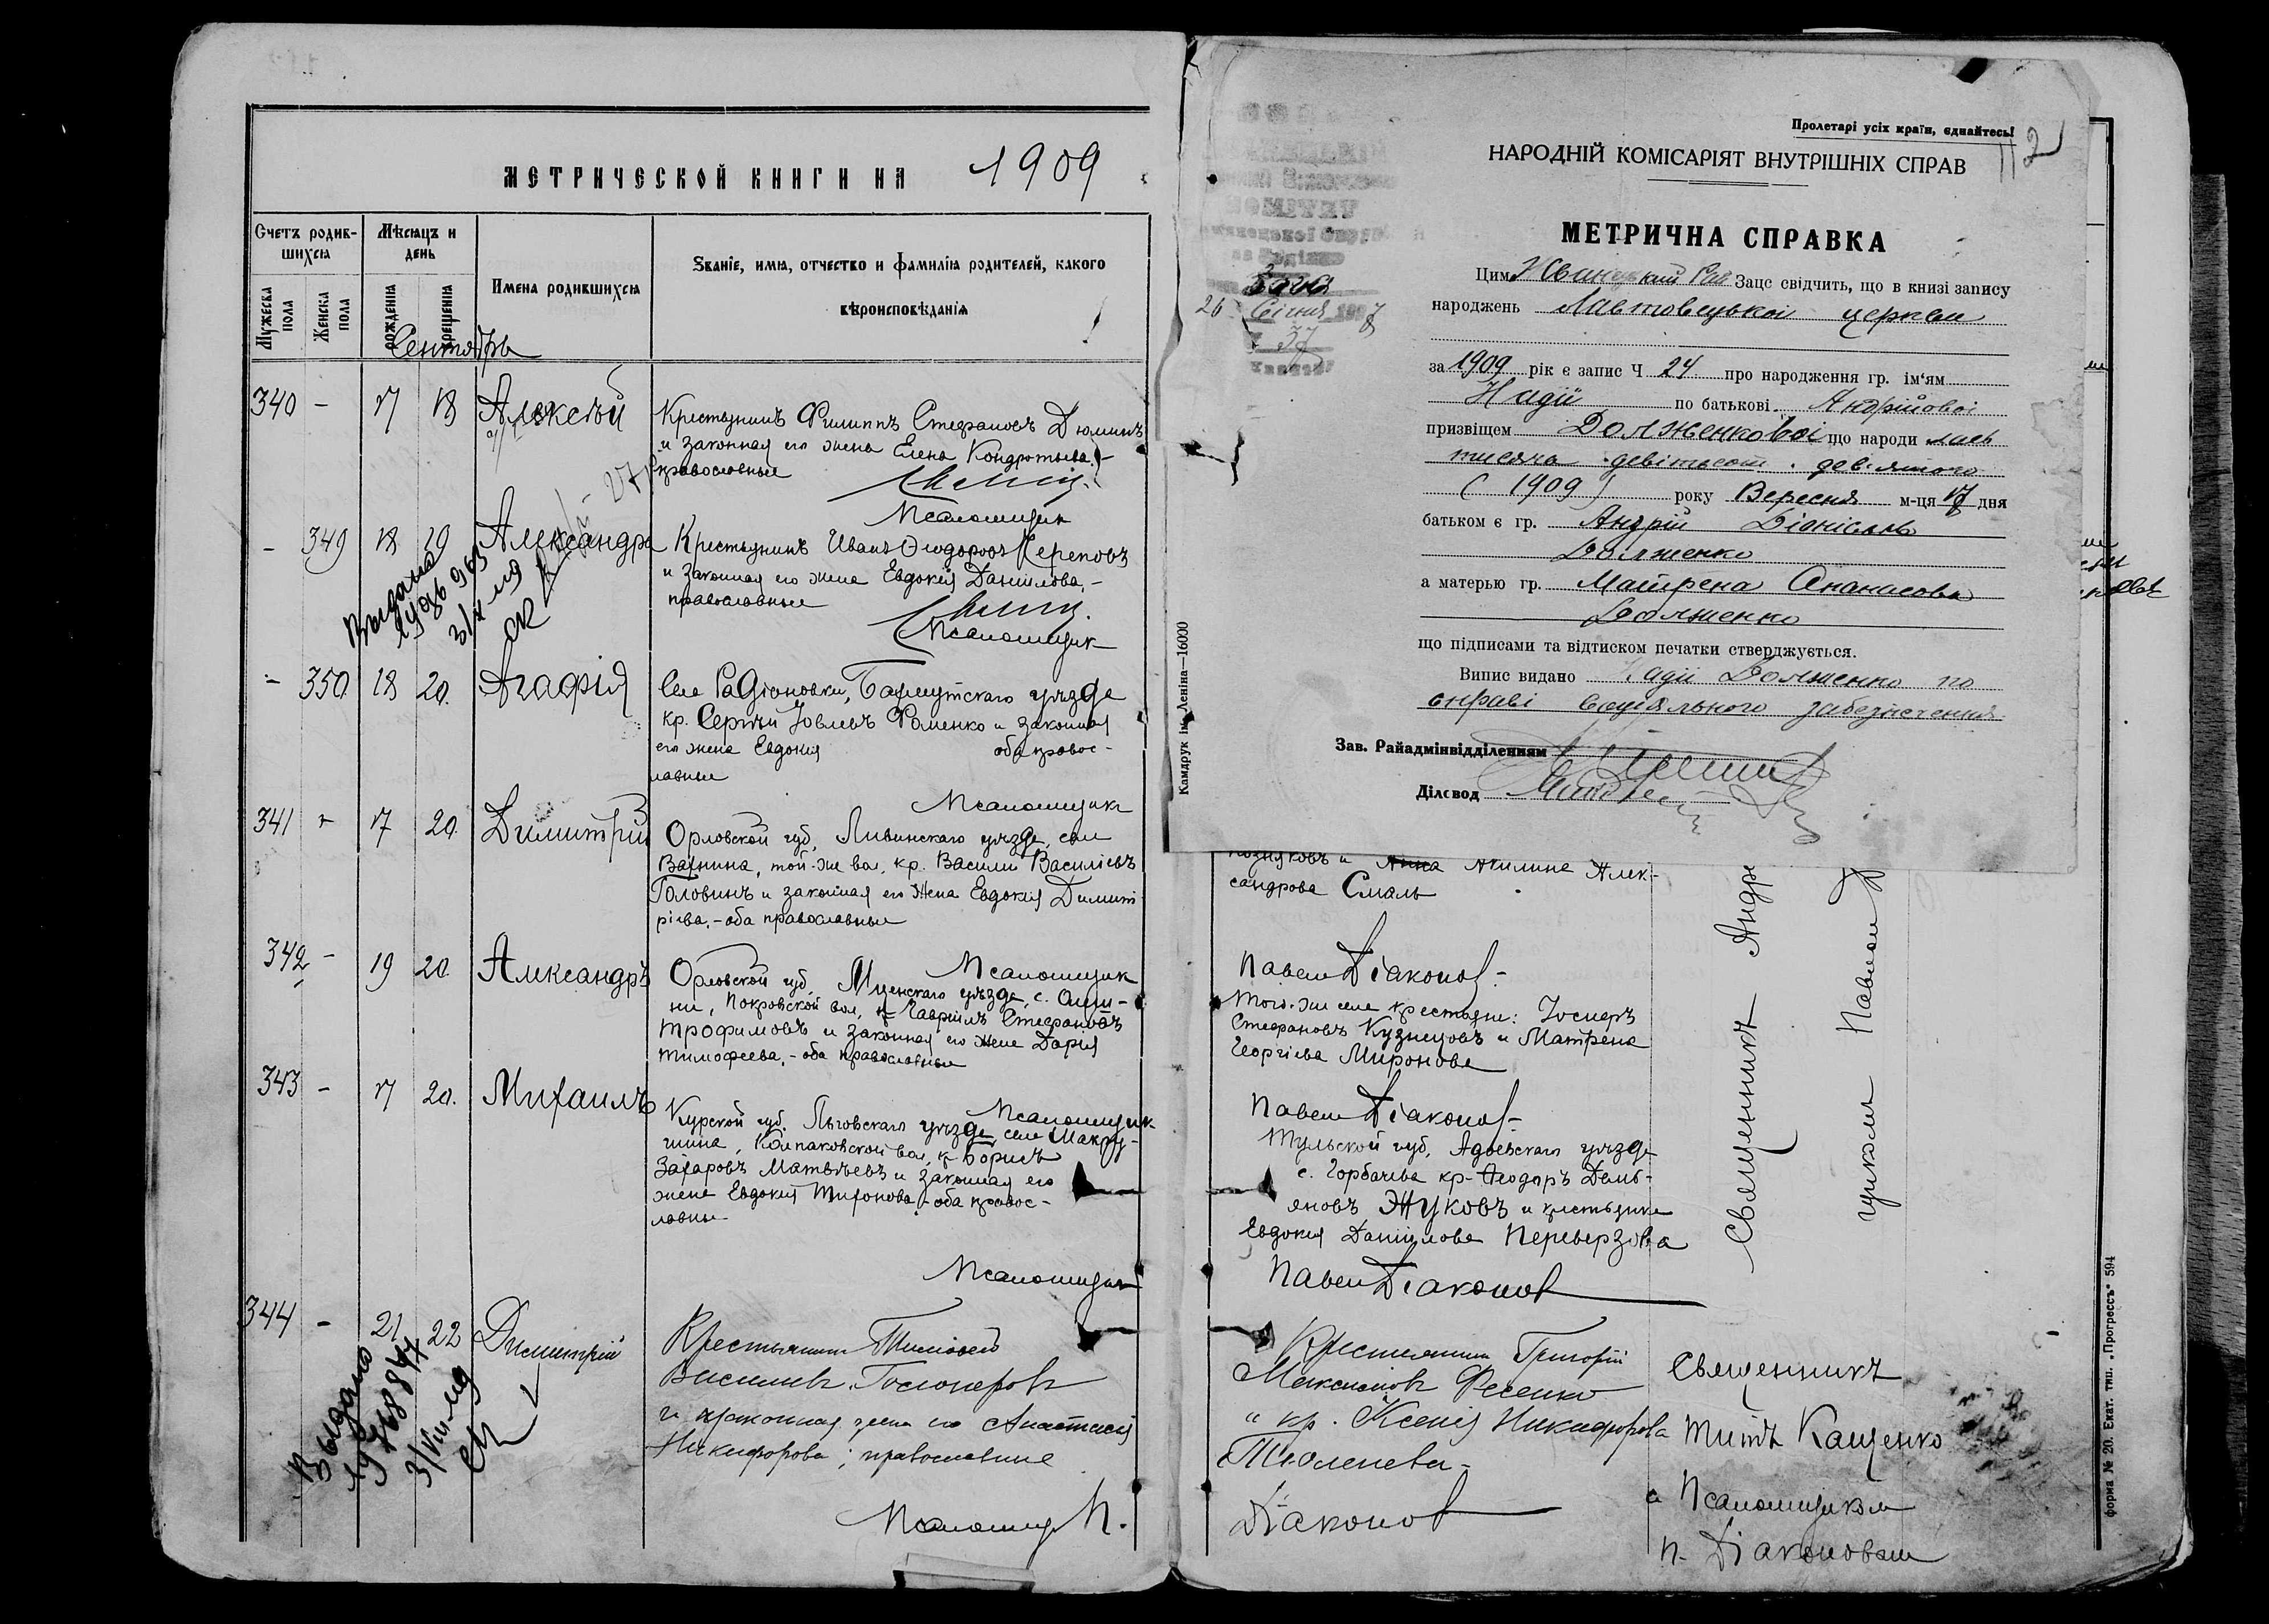 МЕТРИЧЕСКОЙ КНИГИ НА 1909
Счетъ родив-
шихся
Мѣсяцъ и
день
Имена родившихся
Званіе, имя, отчество и фамилія родителей, какого
вѣроисповѣданія
Мужеска
пола
Женска
пола
рожденія
крещенія
Сентябрь
340 - 17 18 Алексѣй
Крестьянинъ Филиппъ Стефановъ Дюминъ
и законная его жена Елена Кондратьева, -
православные
Псаломщик
- 349 18 19 Александра
Крестьянинъ Иванъ Ѳеодоровъ Череповъ
и законная его жена Евдокія Даніилова, -
православные
Псаломщик
Выдана
- 350 18 20. Агафія
Села Радіоновки, Бахмутскаго уѣзда
кр. Сергѣй Іовлевъ Фоменко и законная
его жена Евдокія оба правос-
лавные
Псаломщикъ
341 - 17 20. Димитрій
Орловской губ, Ливинскаго уѣзда, села
Вахнина, той-же вол, кр. Василій Василіевъ
Головинъ и законная его жена Евдокія Димит-
ріева, - оба православные
Псаломщик
342 - 19 20 Александръ
Орловской губ, Мценскаго уѣзда, с.
Покровской вол, кр Гавріилъ Стефановъ
Трофимовъ и законная его жена Дарія
Тимофеева, - оба православные
Псаломщик
343 - 17 20. Михаилъ
Курской губ. Льговскаго уѣзда, села Макру-
шина, Колпаковской вол, кр Борисъ
Захаровъ Матвѣевъ и законная его
жена Евдокія оба правос-
лавны-
Псаломщик
344 - 21 22 Димитрій
Крестьянинъ
и законная жена его Анастасія
Никифорова; православные
Выдано
Псаломщ П.
Пролетарі усіх країн, єднайтесь!
112
НАРОДНІЙ КОМІСАРІЯТ ВНУТРІШНІХ СПРАВ
МЕТРИЧНА СПРАВКА
Цим Жванецкий Рай Загс свідчить, що в книзі запису
народжень Лавтовецької церкви
за 1909 рік є запис Ч 24 про народження гр. ім‘ям
Надії по батькові Андрійової
призвіщем Долженкової що народи лась
тисяча девітьсот дев'ятого
( 1909 ) року Вересня м-ця 17 дня
батьком є гр. Андрій Діонісов
Долженко
а матерью гр. Матрена Опанасова
Долженко
що підписами та відтиском печатки стверджується.
Випис видано Надії Долженко по
справі соціяльного забезпечення.
Зав. Райадмінвідділенням
Діловод
Камдрук ім. Леніна—16000
26 Січня
37
Акилина Алек-
сандрова Смаль
Павелъ Діаконов-
Того-же села крестьяне: Іосифъ
Стефановъ Кузнецовъ и Матрена
Георгіева Миронова
Павелъ Діаконов-
Тульской губ, Адоевскаго уѣзда
с. Горбачева кр- Ѳеодоръ Демь-
яновъ Жуковъ и крестьянка
Евдокія Даніилова Переверзова
Павелъ Діаконов
Крестьянин Григорій
Максимовъ Фесенко
и кр. Ксенія Никифорова
Тюленева-
Діаконов
Священникъ
Священникъ
Титъ Кащенко
с Псаломщиком
П. Діаконовым
форма № 20. Екат. тип. „Прогрессъ“ 594